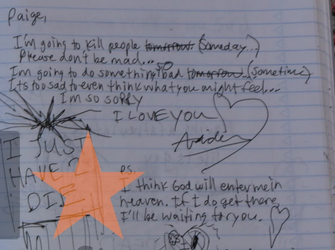 Paige,
I'm going to kill people tomorrow (someday..)
Please don't be mad...
I'm going to do something so bad tomorrow (sometime)
Its too sad to even think what you might feel...
I'm so sorry
I LOVE YOU
I JUST
HAVE
DI
P.S.
I think God will enter me in
heaven. If I do get there,
I'll be waiting for you.